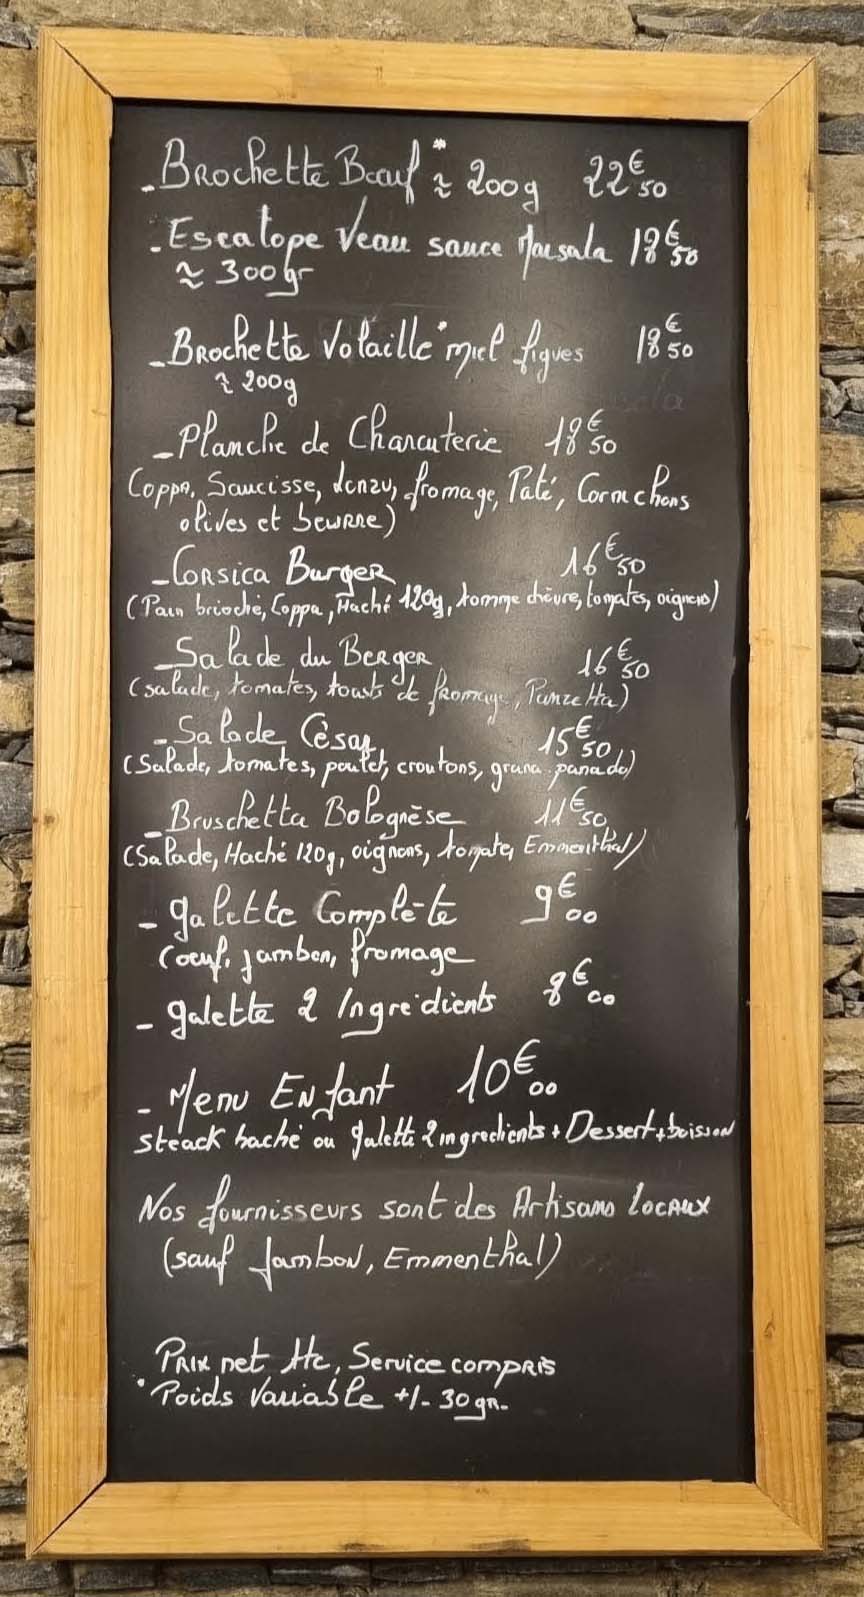 - Brochette Bœuf* ≈ 200g 22€50
- Escalope Veau sauce Marsala 18€50
≈ 300gr
- Brochette Volaille* miel figues 18€50
≈ 200g
- Planche de Charcuterie 18€50
(Coppa, Saucisse, Lonzu, fromage, Paté, Cornichons
olives et beurre)
- Corsica Burger 16€50
(Pain brioché, Coppa, Haché 120g, tomme chèvre, tomates, oignons)
- Salade du Berger 16€50
(salade, tomates, toasts de fromage, Panzetta)
- Salade César 15€50
(Salade, tomates, poulet, croutons, grana panado)
- Bruschetta Bolognèse 11€50
(Salade, Haché 120g, oignons, tomate, Emmenthal)
- galette Complète 9€00
(oeuf, jambon, fromage
- galette 2 Ingrédients 8€00
- Menu Enfant 10€00
steack haché ou galette 2 ingredients + Dessert + boisson
Nos fournisseurs sont des Artisans locaux
(sauf Jambon, Emmenthal)
Prix net ttc, Service compris
* Poids Variable +/- 30 gr.